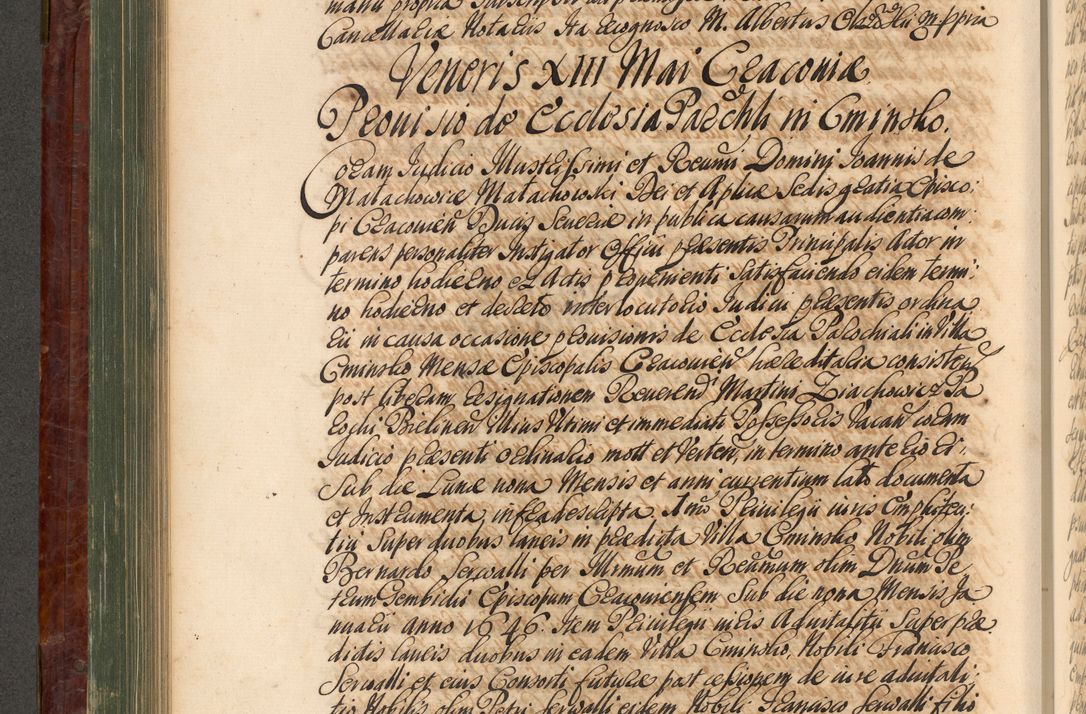 manu propria
Cancellariæ Notarius. Ita recognosco M. Albertus mppria
Veneris XIII Mai Cracoviæ
Provisio de Ecclesia Parochli in Cminsko.
Coram Judicio Illustrissimi et Reverenmi Domini Joannis de
Małachowice Małachowski Dei et Aplicæ Sedis gratia Episco:
pi Cracovien Ducis Severiæ in publica causarum audientia com:
parens personaliter Instigator Officii præsentis Principalis Actor in
termino hodierno ex Actis provenienti satisfaciendo eidem termi:
no hodierno et decreto interlocutorio Judicii præsentis ordina
rii in causa occasione provisionis de Ecclesia Parochiali in Villa
Cminsko Mensæ Episcopalis Cracovien hæreditaria consisten
post liberam resignationem Reverend Martini Ziachowicz Pa
rochi Bielinen Illius Ultimi et immediati Possessoris vacan coram
Judicio præsenti ordinario mott et Verten, in termino anteriori
Sub die Lunæ nona Mensis et anni currentium lato documenta
et Instrumenta infrascripta. Imo Privilegii iuris Emphiteu:
tici super duobus laneis in prædicta Villa Cminsko Nobili olim
Bernardo Serwalli per Illmum et Reverenmum olim Dnum Pe
trum Gembicki Episcopum Cracoviensem sub die nona Mensis Ja
nuarii Anno 1646 Item Privilegii iuris Advitalitii super præ
dictis laneis duobus in eadem Villa Cminsko, Nobili Francisco
Serwalli et eius Consorti futuræ post cessionem de iure advitali
tio Nobilis olim Petri Serwalli eidem Nobili Francisco Serwalli filio